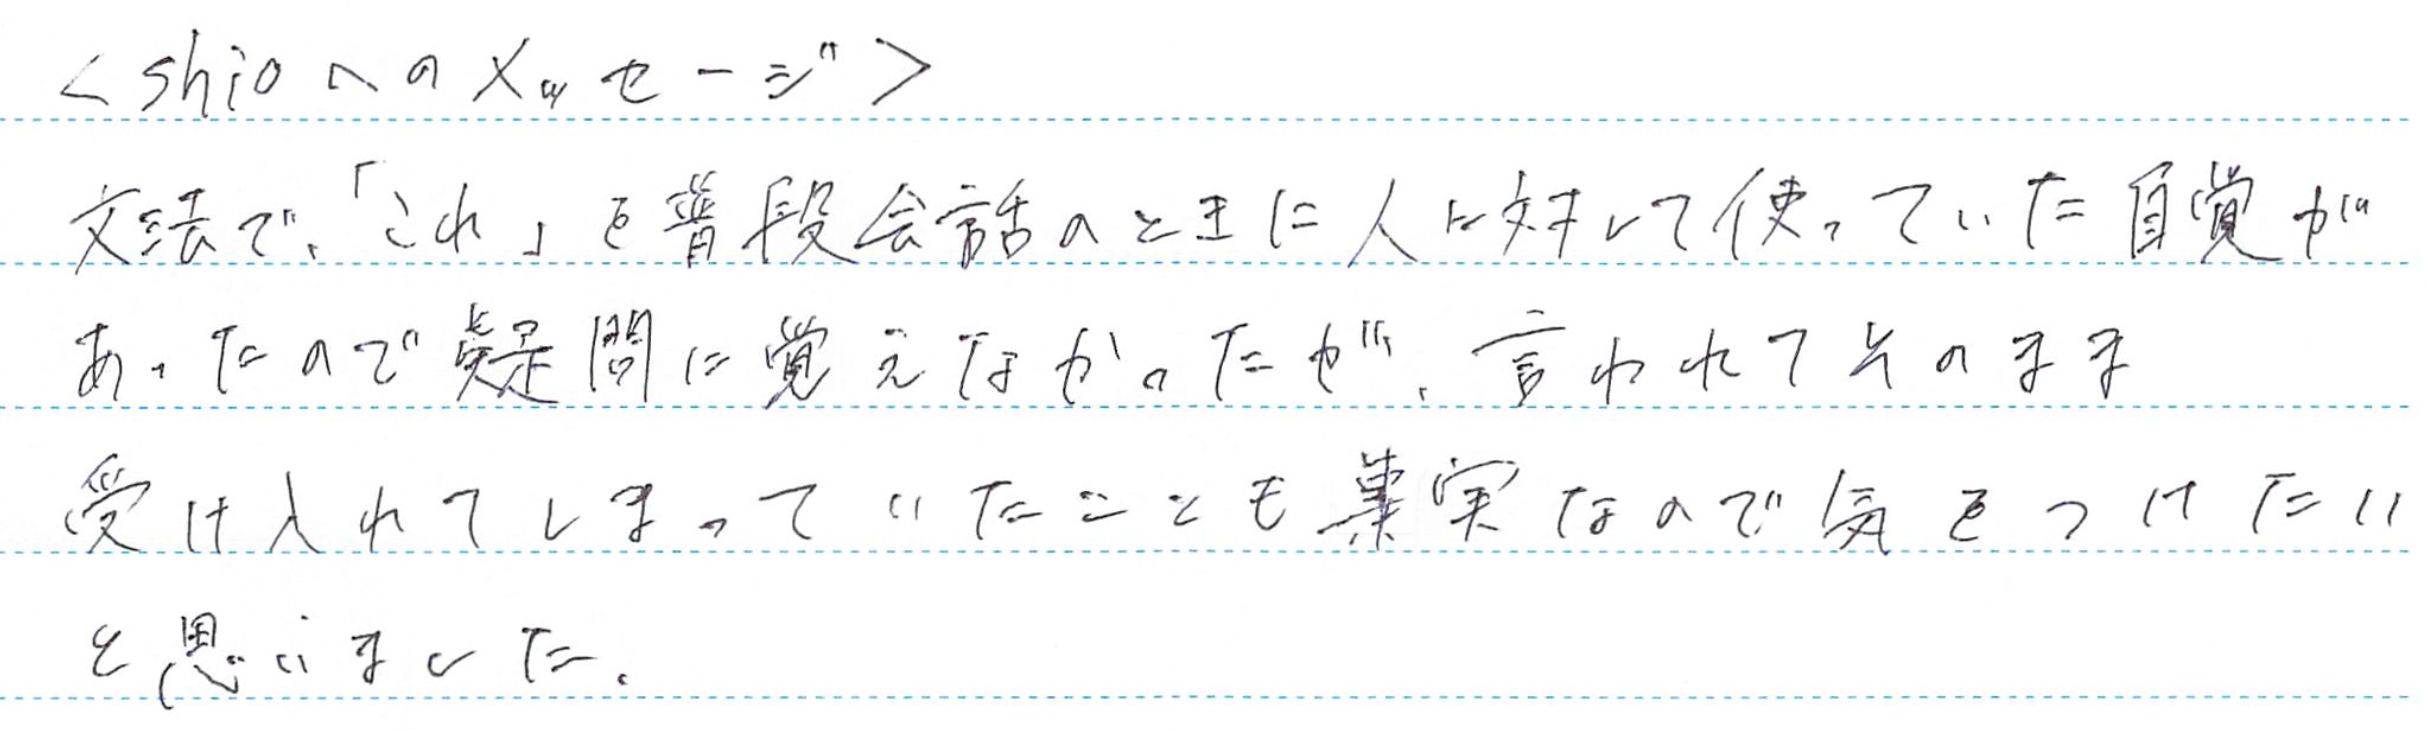 <shioへのメッセージ>
文法で、「これ」を普段会話のときに人に対して使っていた自覚が
あったので疑問に覚えなかったが、言われてそのまま
受け入れてしまっていたことも事実なので気をつけたい
と思いました。